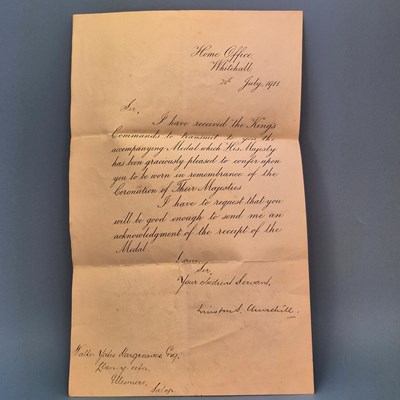 Home Office,
Whitehall.
July, 1911
Sir,
I have received the King's
Commands to transmit to you the
accompanying Medal which His Majesty
has been graciously pleased to confer upon
you to be worn in remembrance of the
Coronation of Their Majesties
I have to request that you
will be good enough to send me an
acknowledgment of the receipt of the
Medal.
I am,
Sir,
Your Obedient Servant,
Winston S. Churchill.
Hargreaves Esq.
Salop